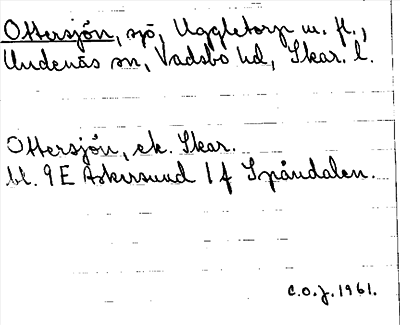 Ottersjön, sjö, Uggletorp m. fl.,
Undenäs sn, Vadsbo hd, Skar. l.
Ottersjön, ek. Skar.
bl. 9E Askersund 1 f Spåndalen.
C.O.J. 1961.